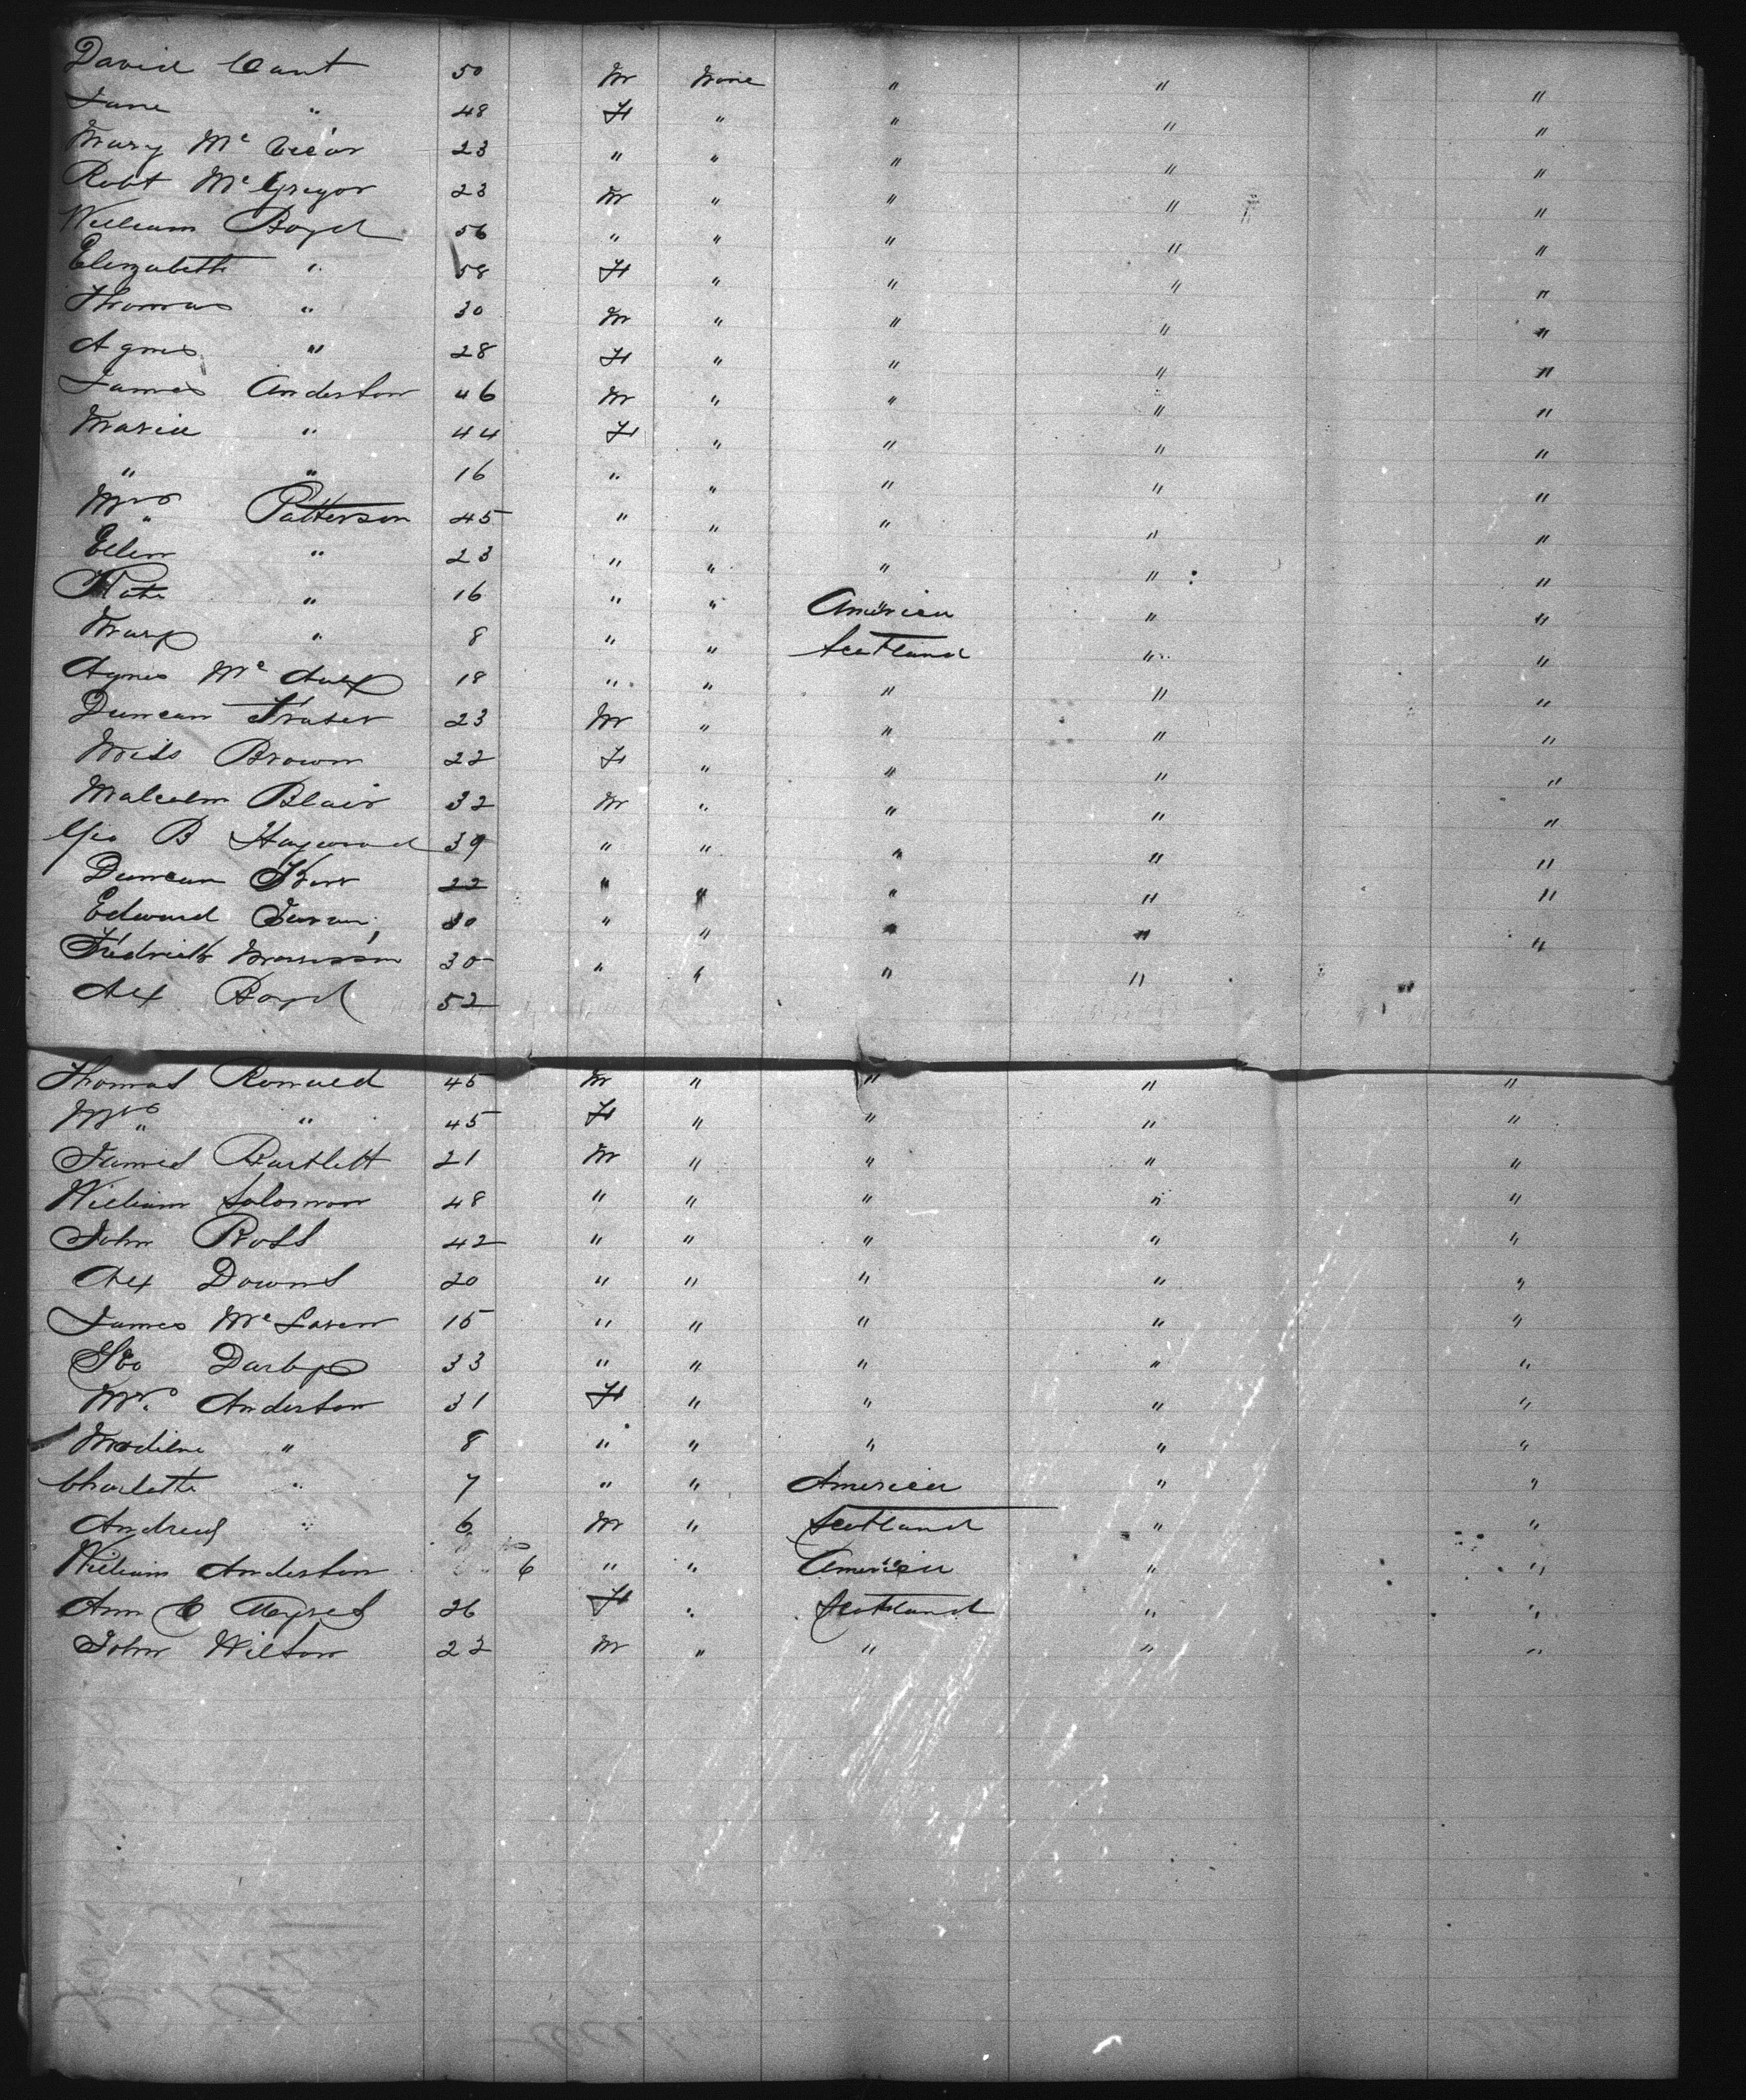 David Cant 50 M None " " "
Jane " 48 F " " " "
Mary Mc Vicar 23 " " " " "
Robt Mc Gregor 23 M " " " "
William Boyd 56 " " " " "
Elizabeth " 58 F " " " "
Thomas " 30 M " " " "
Agnes " 28 F " " " "
James Anderson 46 M " " " "
Maria " 44 F " " " "
" " 16 " " " " "
Mrs " Patterson 45 " " " " "
Ellen " 23 " " " " "
Kate " 16 " " America " "
Mary " 8 " " Scotland " "
Agnes Mc 18 " " " " "
Duncan Fraser 23 M " " " "
Miss Brown 22 F " " " "
Malcolm Blair 32 M " " " "
Geo B Haywood 39 " " " " "
Duncan Kerr 22 " " " " "
Edward 30 " " " " "
Fredrick Morrisson 30 " " " "
Alex Boyd 52
Thomas Ronald 45 M " " " "
Mrs " " 45 F " " " "
James Bartlett 21 M " " " "
William Solomon 48 " " " " "
John Ross 42 " " " " "
Alex Downs 20 " " " " "
James Mc Laren 15 " " " " "
Geo Darby 33 " " " " "
Mrs Anderson 31 F " " " "
" 8 " " " " "
Charlotte " 7 " " America " "
Andrew " 6 M " Scotland " "
William Anderson 6 " " America " "
Ann C 26 F " Scotland " "
John Wilson 22 M " " " "